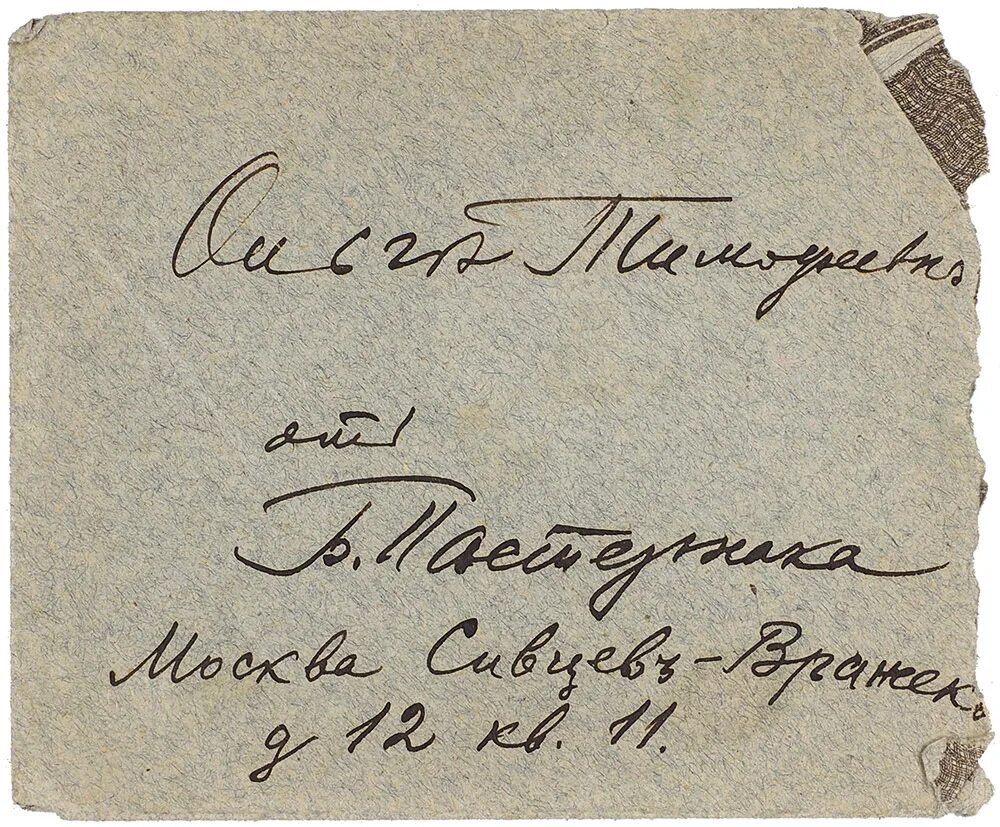 Ользѣ Тимофѣевнѣ
отъ
Б. Пастернака
Москва Сивцевъ-Вражекъ
д 12 кв. 11.